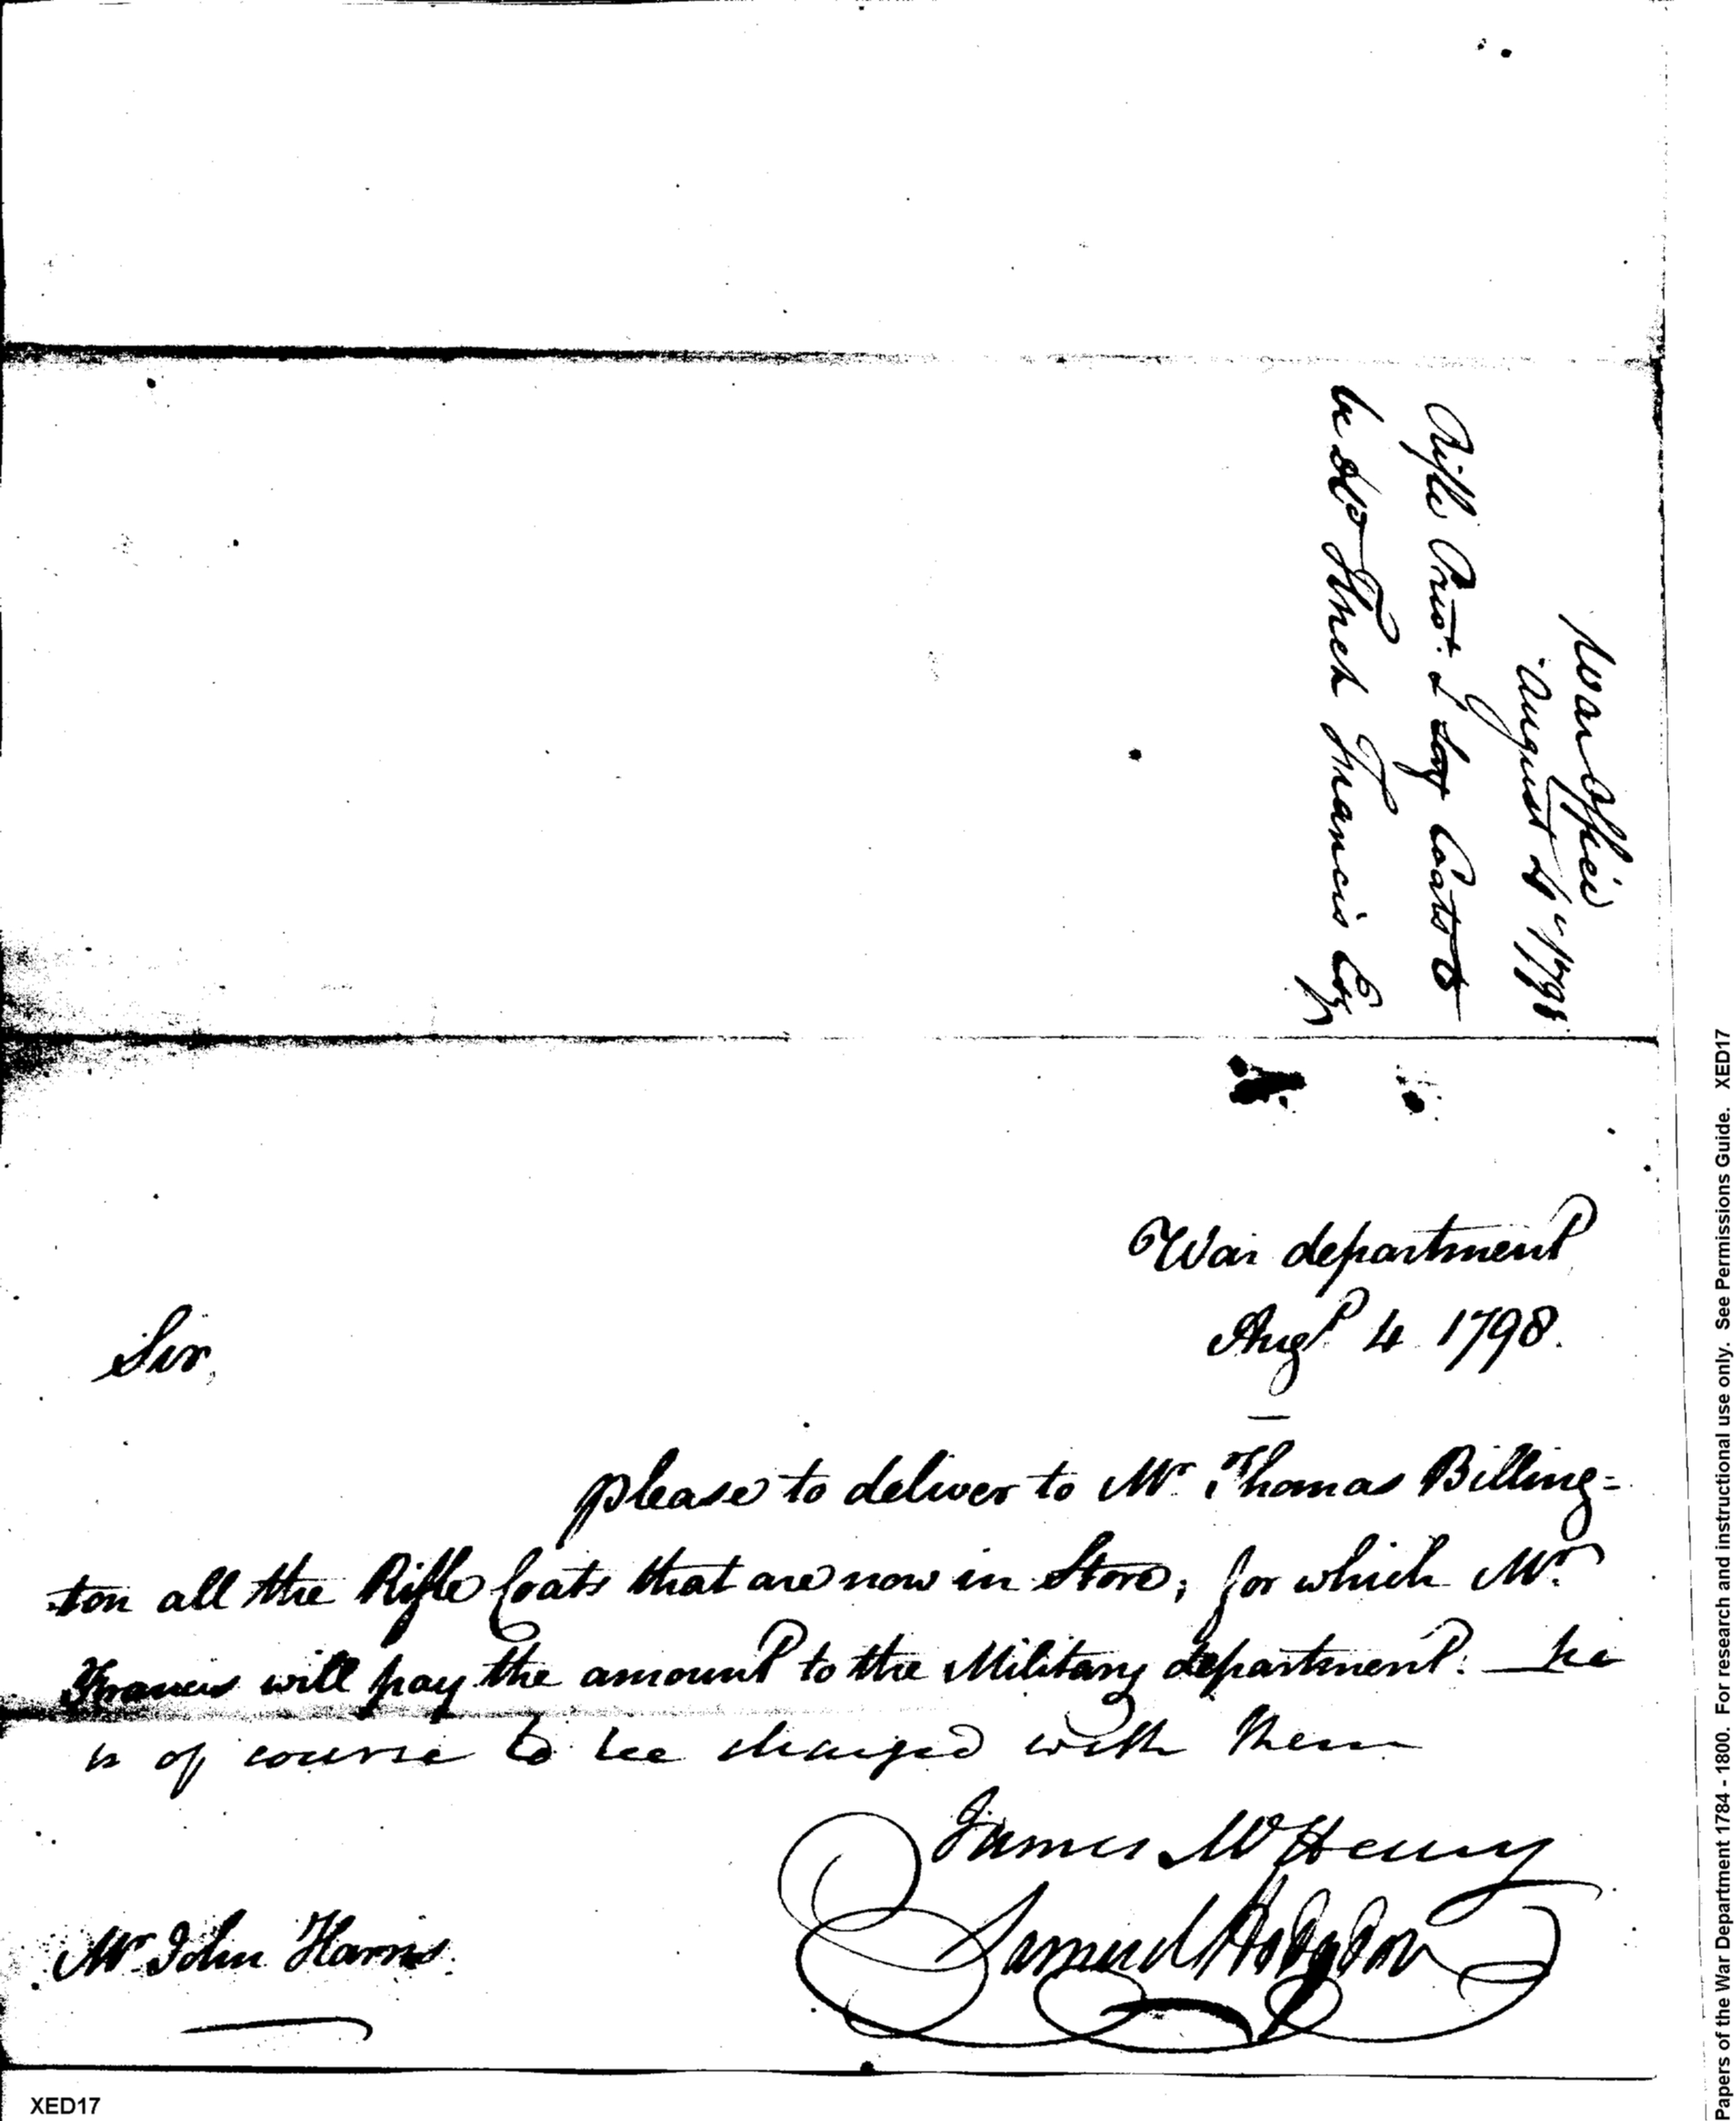 War Office
August 4th 1798
Rifle Coats to
be Tench Francis Esqr
War department
Augt 4 1798.
Sir,
please to deliver to Mr Thomas Billing=
ton all the Rifle Coats that are now in Store; for which Mr
Francis will pay the amount to the Military department. he
is of course to be charged with them
James McHenry
Samuel Hodgdon
Mr John Harris.
XED17
Papers of the War Department 1784 - 1800. For research and instructional use only. See Permissions Guide. XED17